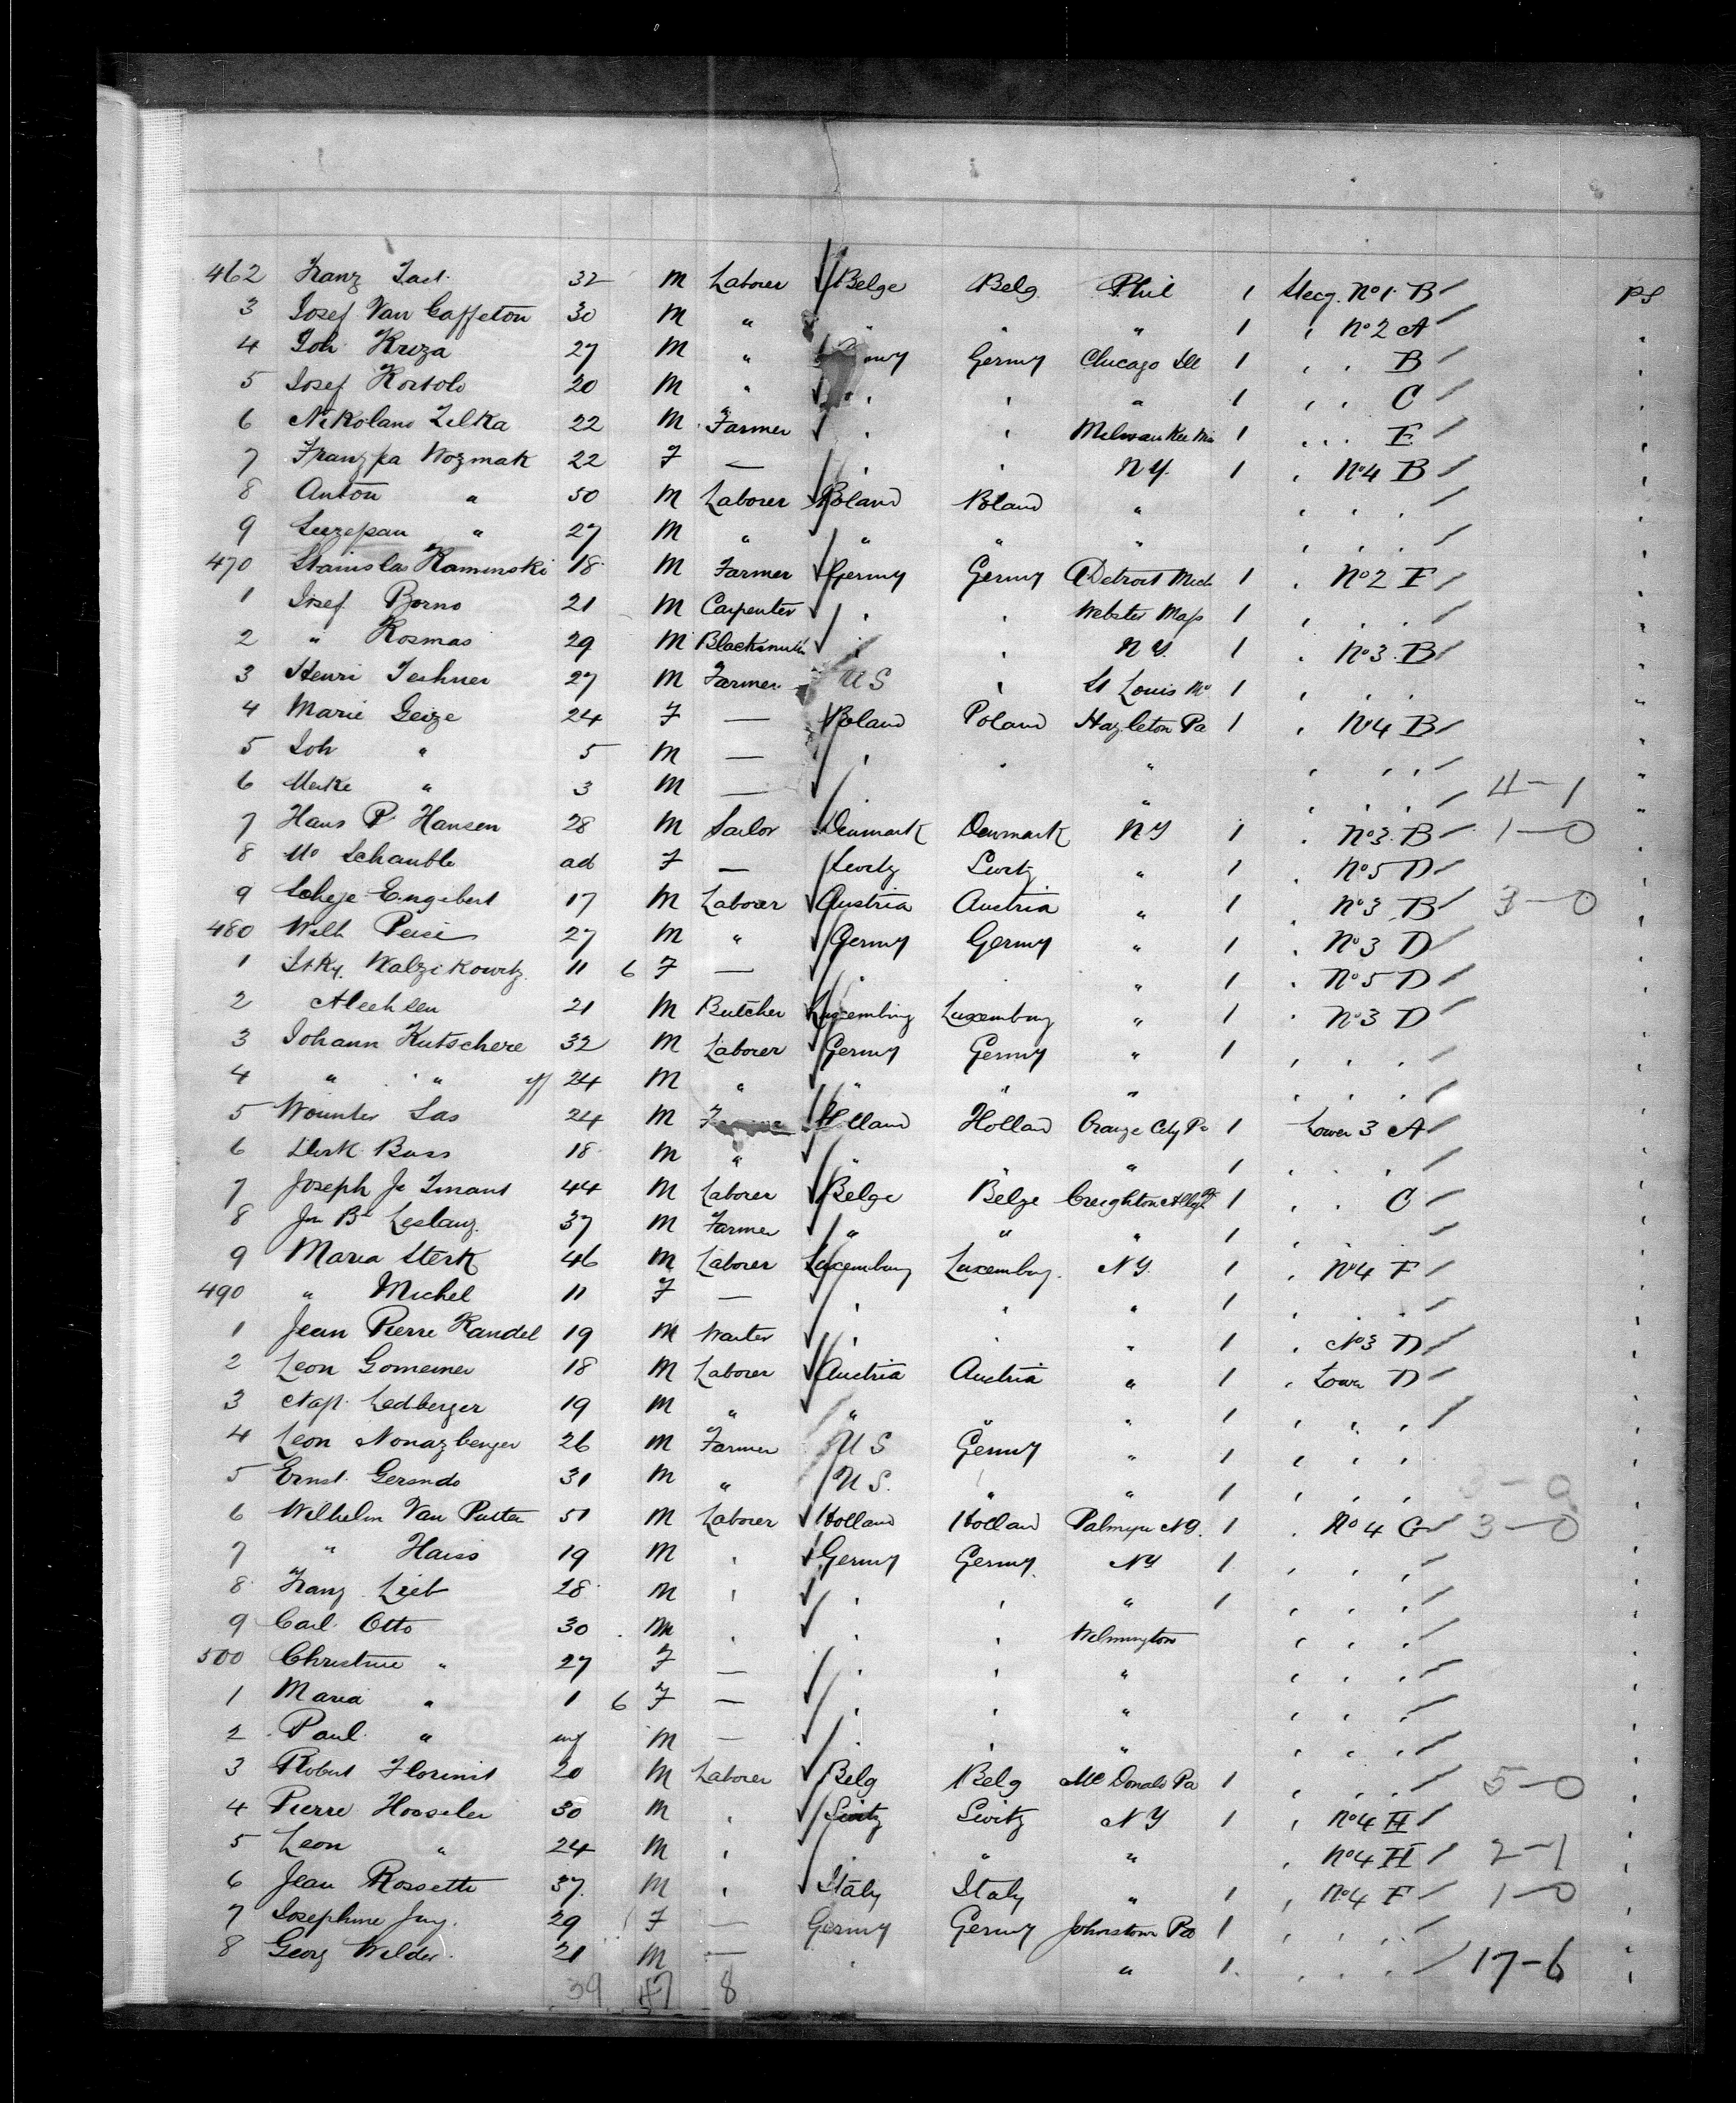 462 Franz 32 M Laborer Belge Belg. Phil 1 Steeg. No 1. B PS
3 Josef Van Caffeton 30 M " " " " 1 " No 2 A "
4 Joh Kriza 27 M " Germy Chicago Ill 1 " " B "
5 Josef 20 M " " " " 1 " " C "
6 Nikolaus Zelka 22 M Farmer " " Milwaukee Wis 1 " " E "
7 Wozmak 22 F — " " N Y. 1 " No 4 B "
8 Anton " 50 M Laborer Poland Poland " " " " "
9 " 27 M " " " " " " " "
470 Stanislas Kaminski 18 M Farmer Germy Germy Detroit Mich 1 " No 2 E "
1 Josef Borno 21 M Carpenter " " Webster Mass 1 " " " "
2 " Kosmas 29 M Blacksmith " " N Y. 1 " No 3 B "
3 Henri Teshner 27 M Farmer U S " St Louis Mo 1 " " " "
4 Marie Geize 24 F — Poland Poland Hazleton Pa 1 " No 4 B "
5 Joh " 5 M — " " " " " " "
6 " 3 M — " " " " " " 4-1 "
7 Hans P. Hansen 28 M Sailor Denmark Denmark N Y 1 " No 3. B 1-0 "
8 Schauble ad F — Switz Switz " 1 " No 5 D "
9 Engibert 17 M Laborer Austria Austria " 1 " No 3 B 3-0 "
480 Wilh 27 M " Germy Germy " 1 " No 3 D "
1 Walzikowitz 11 6 F — " " " 1 " No 5 D "
2 21 M Butcher Luxemburg Luxemburg " 1 " No 3 D "
3 Johann Kutschere 32 M Laborer Germy Germy " 1 " " " "
4 " " 24 M " " " " " " " "
5 Wounter Las 24 M Holland Holland Orange City 1 Lower 3 A "
6 Dirk Bass 18 M " " " " 1 " " " "
7 Joseph 44 M Laborer Belge Belge Creighton 1 " " C "
8 37 M Farmer " " " 1 " " " "
9 Maria Sterk 46 M Laborer Luxemburg Luxemburg. N Y. 1 " No 4 F "
490 " Michel 11 F — " " " 1 " " " "
1 Jean Pierre Kandel 19 M Waiter " " " 1 " No 3 D "
2 Leon 18 M Laborer Austria Austria " 1 " Lower D "
3 Nap. Ledberger 19 M " " " " 1 " " " "
4 Leon Nonazberger 26 M Farmer U S Germy " 1 " " " "
5 Ernst 31 M " U S. " " 1 " " " 3-0 "
6 Wilhelm Van 51 M Laborer Holland Holland Palmyra N Y. 1 " No 4 G 3-0 "
7 " Haiss 19 M " Germy Germy. N Y 1 " " " "
8 Franz Lieb 28 M " " " " 1 " " " "
9 Carl Otto 30 M " " " Wilmington " " " "
500 Christine " 27 F — " " " " " " "
1 Maria " 1 6 F — " " " " " " "
2 Paul " inf M — " " " " " " "
3 Robert 20 M Laborer Belg Belg Mc Donald Pa 1 " " " 5-0 "
4 Pierre Hosseler 30 M " Switz Switz N Y 1 " No 4 H "
5 Leon " 24 M " " " " No 4 H 2-1 "
6 Jean Rossetti 37 M " Italy Italy " 1 " No 4 F 1-0 "
7 Josephine 29 F — Germy Germy Johnstown Pa 1 " " " "
8 Georg Wilder 21 M — " " 1 " " " 17-6 "
39 47 8